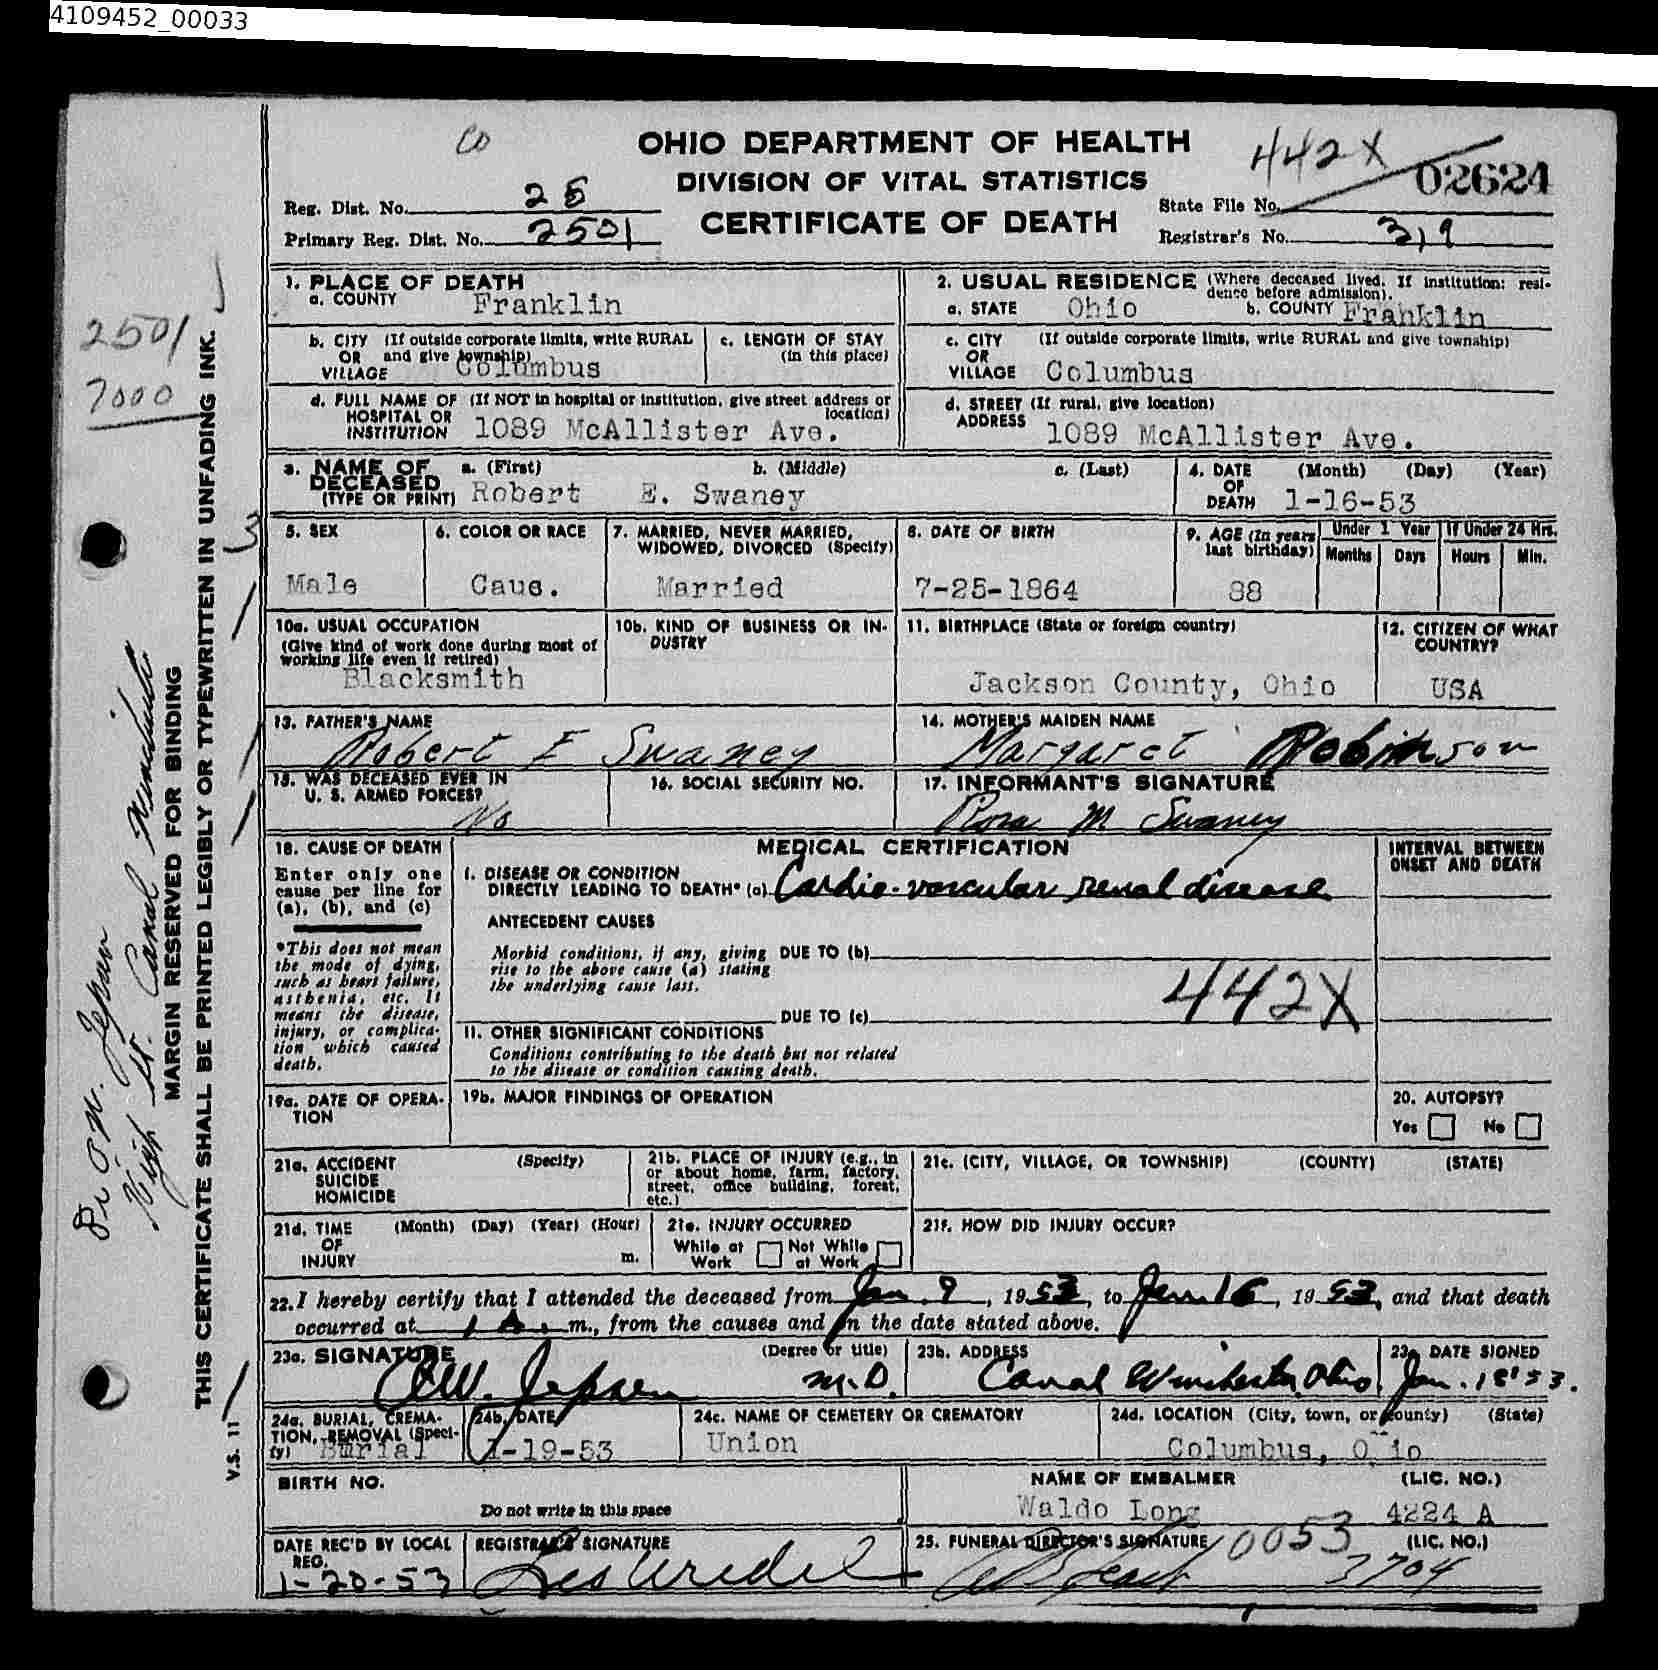 4109452_00033
Co
OHIO DEPARTMENT OF HEALTH
DIVISION OF VITAL STATISTICS
CERTIFICATE OF DEATH
442X
Reg. Dist. No. 25
Primary Reg. Dist. No. 2501
State File No. 02624
Registrar's No. 319
1. PLACE OF DEATH
a. COUNTY Franklin
b. CITY (If outside corporate limits, write RURAL
OR and give township)
VILLAGE Columbus
c. LENGTH OF STAY
(in this place)
d. FULL NAME OF (If NOT in hospital or institution, give street address or
HOSPITAL OR location)
INSTITUTION 1089 McAllister Ave.
2. USUAL RESIDENCE (Where deceased lived. If institution: resi-
dence before admission).
a. STATE Ohio b. COUNTY Franklin
c. CITY (If outside corporate limits, write RURAL and give township)
OR
VILLAGE Columbus
d. STREET (If rural, give location)
ADDRESS 1089 McAllister Ave.
3. NAME OF a. (First) b. (Middle) c. (Last)
DECEASED
(TYPE OR PRINT) Robert E. Swaney
4. DATE (Month) (Day) (Year)
OF
DEATH 1-16-53
5. SEX
Male
6. COLOR OR RACE
Caus.
7. MARRIED, NEVER MARRIED,
WIDOWED, DIVORCED (Specify)
Married
8. DATE OF BIRTH
7-25-1864
9. AGE (In years
last birthday)
88
Under 1 Year
Months Days
If Under 24 Hrs.
Hours Min.
10a. USUAL OCCUPATION
(Give kind of work done during most of
working life even if retired)
Blacksmith
10b. KIND OF BUSINESS OR IN-
DUSTRY
11. BIRTHPLACE (State or foreign country)
Jackson County, Ohio
12. CITIZEN OF WHAT
COUNTRY?
USA
13. FATHER'S NAME
Robert E Swaney
14. MOTHER'S MAIDEN NAME
Margaret Robinson
15. WAS DECEASED EVER IN
U. S. ARMED FORCES?
No
16. SOCIAL SECURITY NO.
17. INFORMANT'S SIGNATURE
Rosa M Swaney
18. CAUSE OF DEATH
Enter only one
cause per line for
(a), (b), and (c)
*This does not mean
the mode of dying,
such as heart failure,
asthenia, etc. It
means the disease,
injury, or complica-
tion which caused
death.
MEDICAL CERTIFICATION
I. DISEASE OR CONDITION
DIRECTLY LEADING TO DEATH* (a) Cardio-vascular renal disease
ANTECEDENT CAUSES
Morbid conditions, if any, giving DUE TO (b)
rise to the above cause (a) stating
the underlying cause last.
442X
DUE TO (c)
II. OTHER SIGNIFICANT CONDITIONS
Conditions contributing to the death but not related
to the disease or condition causing death.
INTERVAL BETWEEN
ONSET AND DEATH
19a. DATE OF OPERA-
TION
19b. MAJOR FINDINGS OF OPERATION
20. AUTOPSY?
Yes No
21a. ACCIDENT (Specify)
SUICIDE
HOMICIDE
21b. PLACE OF INJURY (e.g., in
or about home, farm, factory,
street, office building, forest,
etc.)
21c. (CITY, VILLAGE, OR TOWNSHIP) (COUNTY) (STATE)
21d. TIME (Month) (Day) (Year) (Hour)
OF
INJURY m.
21e. INJURY OCCURRED
While at Not While
Work at Work
21f. HOW DID INJURY OCCUR?
22. I hereby certify that I attended the deceased from Jan. 9, 1953, to Jan 16, 1953, and that death
occurred at 1 A. m., from the causes and on the date stated above.
23a. SIGNATURE (Degree or title)
O.W. Jepsen M.D.
23b. ADDRESS
Canal Winchester, Ohio
23c. DATE SIGNED
Jan. 18'53.
24a. BURIAL, CREMA-
TION, REMOVAL (Speci-
fy) Burial
24b. DATE
1-19-53
24c. NAME OF CEMETERY OR CREMATORY
Union
24d. LOCATION (City, town, or county) (State)
Columbus, O io
BIRTH NO.
Do not write in this space
NAME OF EMBALMER (LIC. NO.)
Waldo Long 4224 A
DATE REC'D BY LOCAL
REG.
1-20-53
REGISTRAR'S SIGNATURE
25. FUNERAL DIRECTOR'S SIGNATURE (LIC. NO.)
0053
3704
2501
7000
3
MARGIN RESERVED FOR BINDING
THIS CERTIFICATE SHALL BE PRINTED LEGIBLY OR TYPEWRITTEN IN UNFADING INK.
V.S. 11